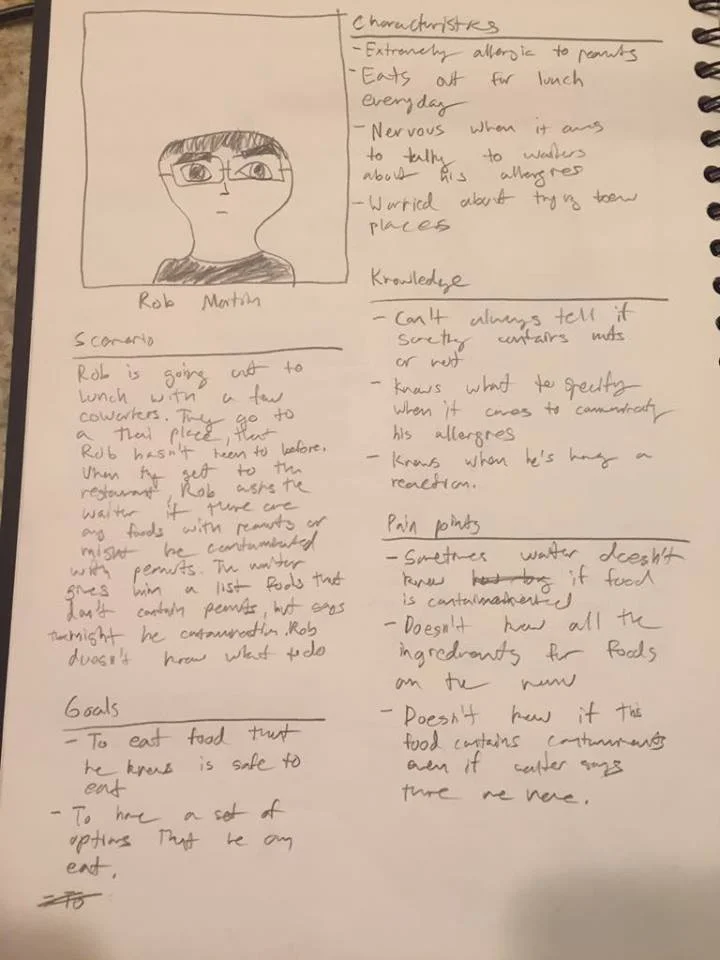 Rob Martin
Characteristics
- Extremely allergic to peanuts
- Eats out for lunch
everyday
- Nervous when it comes
to talking to waiters
about his allergies
- Worried about trying new
places
Knowledge
- Can't always tell if
something contains nuts
or not
- Knows what to specify
when it comes to communicating
his allergies
- Knows when he's having a
reaction.
Pain points
- Sometimes waiter doesn't
know if food
is contaminated
- Doesn't know all the
ingredients for foods
on the menu
- Doesn't know if the
food contains contaminents
even if waiter says
there are none.
Scenario
Rob is going out to
lunch with a few
coworkers. They go to
a Thai place, that
Rob hasn't been to before.
When they get to the
restaurant, Rob asks the
waiter if there are
any foods with peanuts or
might be contaminated
with peanuts. The waiter
gives him a list foods that
don't contain peanuts, but says
there might be contamination. Rob
doesn't know what to do
Goals
- To eat food that
he knows is safe to
eat
- To have a set of
options that he can
eat.